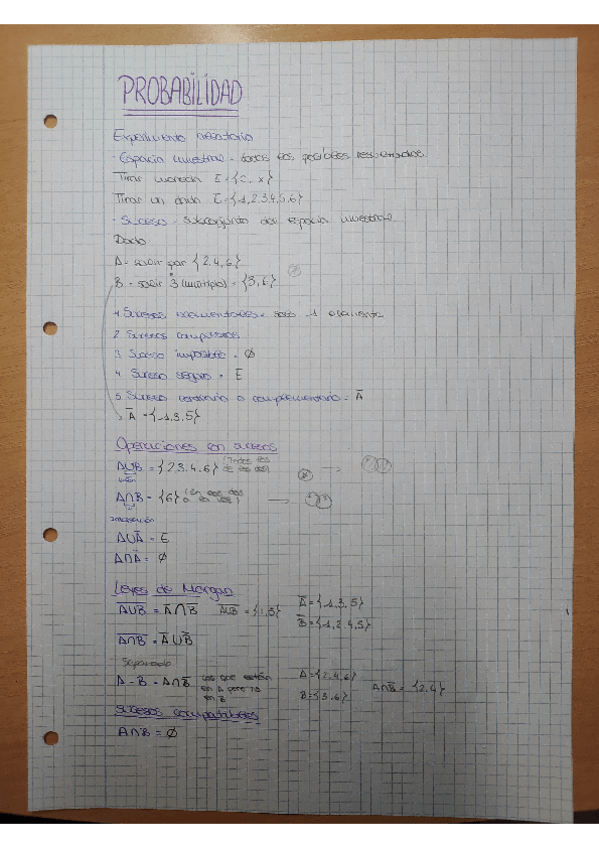 PROBABILIDAD
Experimento aleatorio
- Espacio muestral = todos los posibles resultados
Tirar moneda E={c, x}
Tirar un dado E={1,2,3,4,5,6}
- Suceso = subconjunto del espacio muestral
Dado
A = salir par {2,4,6}
B = salir 3 (múltiplo) = {3,6}
1 Sucesos elementales = solo 1 elemento
2 Sucesos compuestos
3 Suceso imposible = Ø
4 Suceso seguro = E
5 Suceso contrario o complementario = A̅
A̅ = {1,3,5}
Operaciones con sucesos
A∪B = {2,3,4,6} (Todos los de los dos)
unión
A∩B = {6}
intersección
A∪A̅ = E
A∩A̅ = Ø
Leyes de Morgan
A∪B = A̅∩B̅ A∪B = {1,5} A̅ = {1,3,5}
B̅ = {1,2,4,5}
A∩B = A̅∪B̅
A-B = A∩B̅ los que están en A pero no en B A={2,4,6} B={3,6} A∩B̅ = {2,4}
Sucesos compatibles
A∩B = Ø